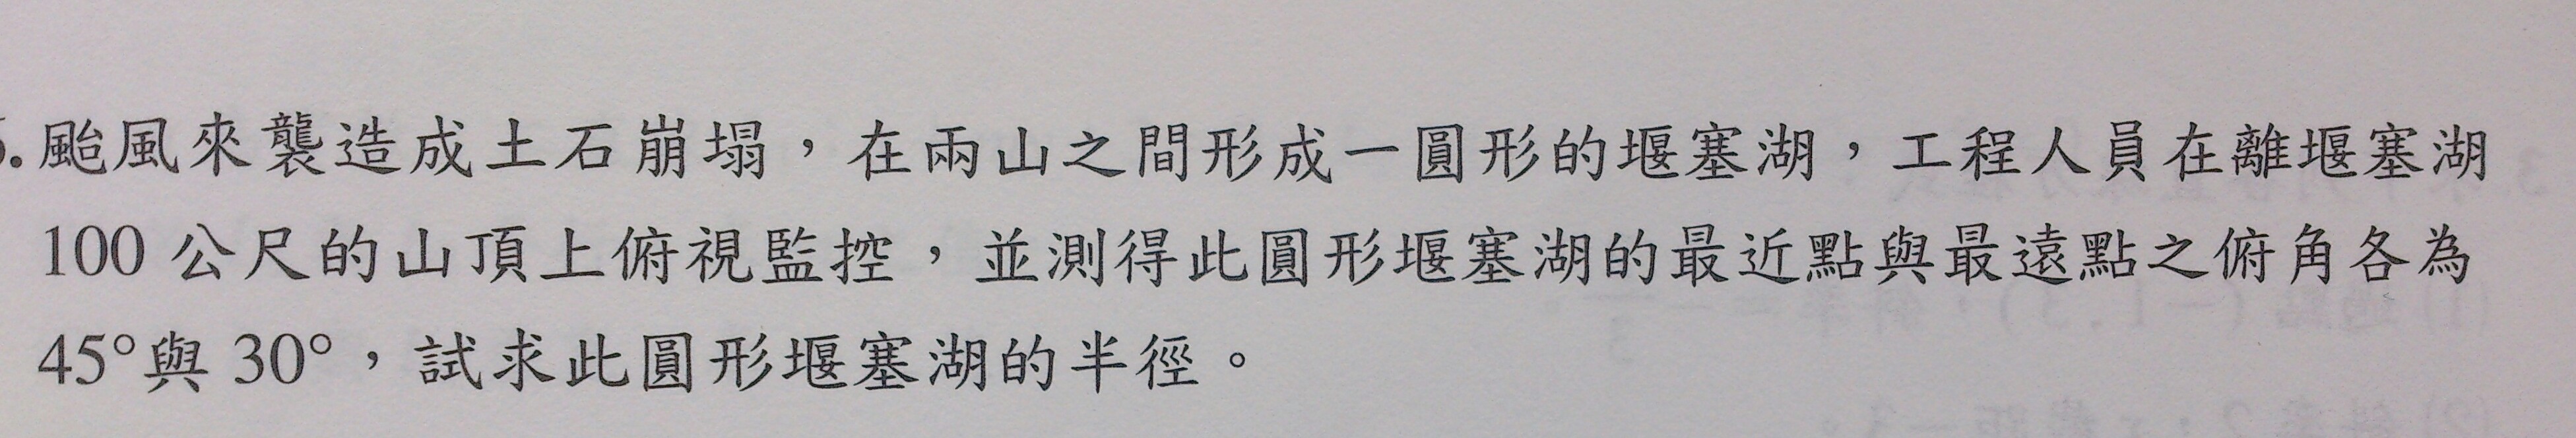 .颱風來襲造成土石崩塌，在兩山之間形成一圓形的堰塞湖，工程人員在離堰塞湖
100 公尺的山頂上俯視監控，並測得此圓形堰塞湖的最近點與最遠點之俯角各為
45°與 30°，試求此圓形堰塞湖的半徑。